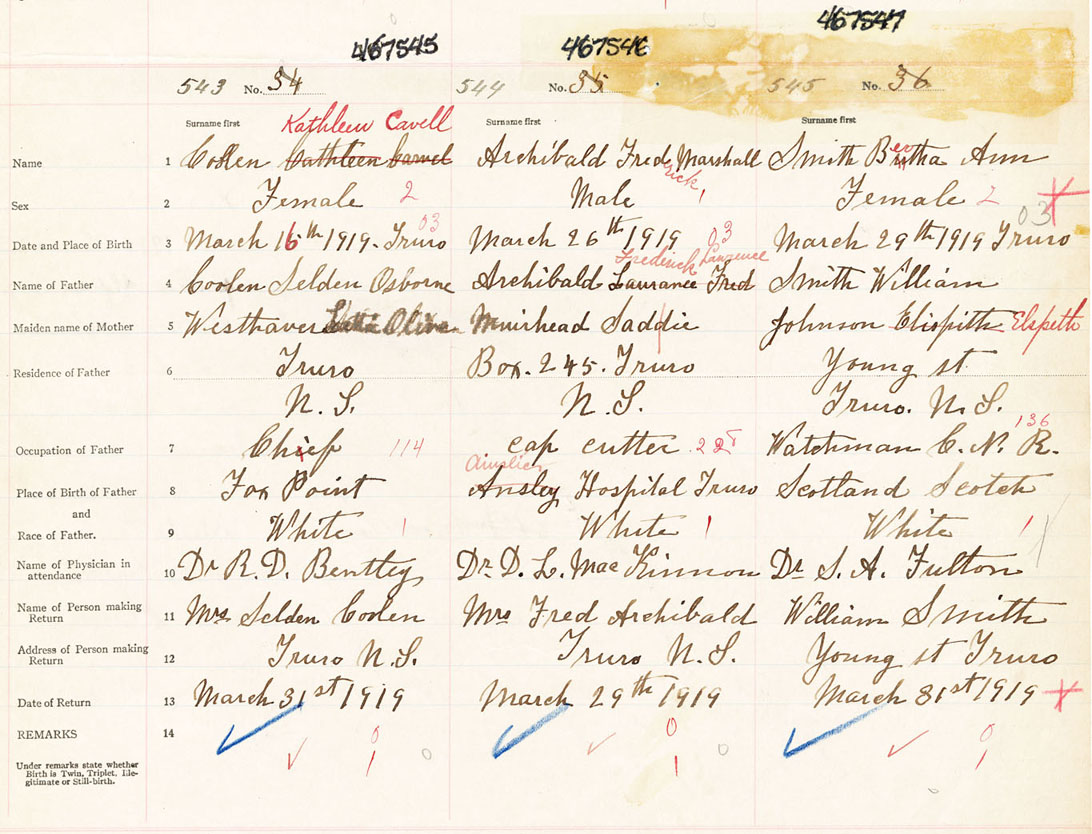 467545 467546 467547
543 No. 34 544 No. 35 545 No. 36
Surname first Kathleen Cavell Surname first Surname first
Name 1 Coolen Cathleen Carvel Archibald Frederick Marshall Smith Bertha Ann
Sex 2 Female 2 Male 1 Female 2
03 03 03
Date and Place of Birth 3 March 16th 1919. Truro March 26th 1919 March 29th 1919 Truro
Frederick Lawrence
Name of Father 4 Coolen Selden Osborne Archibald Laurance Fred Smith William
Maiden name of Mother 5 Westhaver Oliven Muirhead Saddie Johnson Elispith Elspeth
Residence of Father 6 Truro Box. 245. Truro Young st
N. S. N. S. Truro. N. S.
136
Occupation of Father 7 Chief 114 cap cutter 225 Watchman C. N. R.
Ainslie
Place of Birth of Father 8 Fox Point Ansley Hospital Truro Scotland Scotch
and
Race of Father. 9 White 1 White 1 White 1
Name of Physician in
attendance 10 Dr R. D. Bentley Dr. D. L. MacKinnon Dr S. A. Fulton
Name of Person making
Return 11 Mrs Selden Coolen Mrs Fred Archibald William Smith
Address of Person making
Return 12 Truro N. S. Truro N. S. Young st Truro
Date of Return 13 March 31st 1919 March 29th 1919 March 31st 1919
REMARKS 14
0 0 0
1 1 1
Under remarks state whether
Birth is Twin, Triplet, Ille-
gitimate or Still-birth.